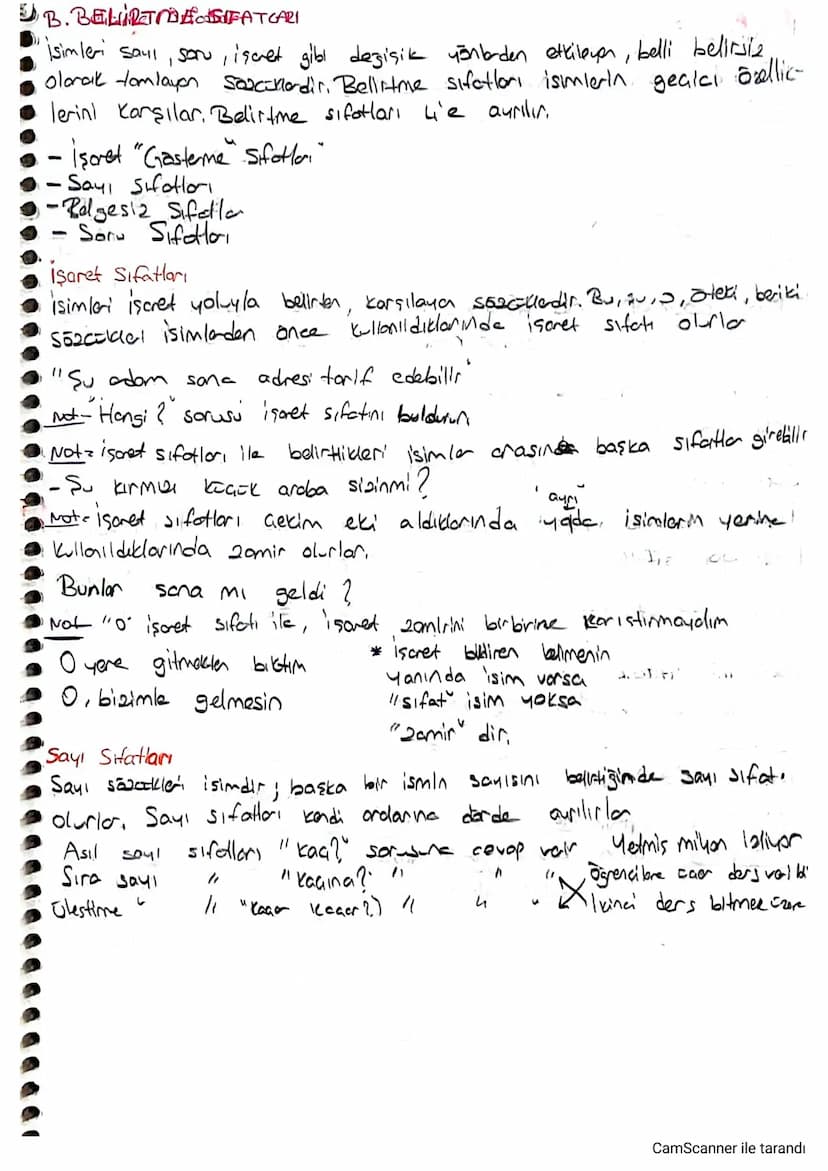 B. BELİRTME SIFATLARI
İsimleri sayı, soru, işaret gibi değişik yönlerden etkileyen, belli belirsiz
olarak tamlayan sözcüklerdir. Belirtme sıfatları isimlerin geçici özellik-
lerini karşılar. Belirtme sıfatları 4'e ayrılır.
- İşaret "Gösterme" Sıfatları
- Sayı sıfatları
- Belgesiz Sıfatlar
- Soru Sıfatları
İşaret Sıfatları
İsimleri işaret yoluyla belirten, karşılayan sözcüklerdir. Bu, şu, o, öteki, beriki
sözcükleri isimlerden önce kullanıldıklarında işaret sıfatı olurlar
"Şu adam sana adresi tarif edebilir"
Not- "Hangi?" sorusu işaret sıfatını buldurur
Not= işaret sıfatları ile belirttikleri isimler arasında başka sıfatlar girebilir
- Şu kırmızı küçük araba sizinmi?
Not= işaret sıfatları çekim eki aldıklarında "ayrı" yada, isimlerin yerine
kullanıldıklarında zamir olurlar.
Bunlar sana mı geldi?
Not "O" işaret sıfatı ile, işaret zamirini birbirine karıştırmayalım
O yere gitmekten bıktım
O, bizimle gelmesin
* işaret bildiren kelimenin
yanında isim varsa
"sıfat" isim yoksa
"zamir" dir.
Sayı Sıfatları
Sayı sözcükleri isimdir; başka bir ismin sayısını belirttiğinde sayı sıfatı
olurlar. Sayı sıfatları kendi aralarına dörde ayrılırlar
Asıl sayı sıfatları "kaç?" sorusuna cevap verir Yetmiş milyon izliyor
Sıra sayı " "kaçına?" " " " Öğrencilere çaer ders verildi
Üleştirme " " "kaçar kaçar?) " " " İkinci ders bitmek üzere
CamScanner ile tarandı